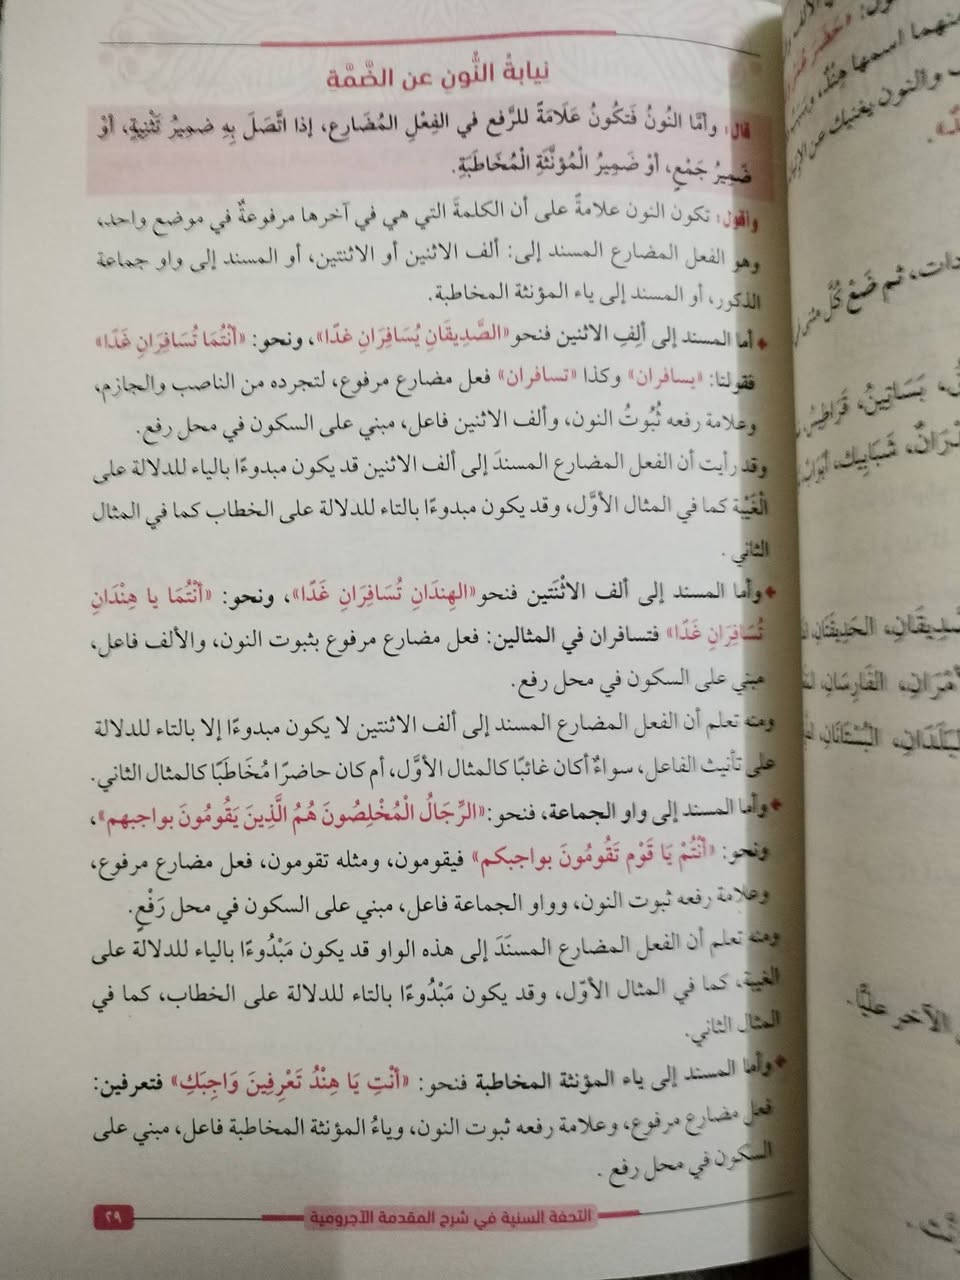 نيابةُ النُّونِ عن الضَّمَّةِ
قال: وأمَّا النُّونُ فَتكُونُ عَلَامَةً للرَّفع في الفِعْلِ المُضَارِع، إذا اتَّصَلَ بِهِ ضميرُ تَثْنِيةٍ، أوْ
ضَمِيرُ جَمْعٍ، أوْ ضَمِيرُ الْمُؤنَّثَةِ الْمُخَاطَبَةِ.
وأقول: تكون النون علامةً على أن الكلمةَ التي هي في آخرها مرفوعةٌ في موضع واحد،
وهو الفعل المضارع المسند إلى: ألف الاثنين أو الاثنتين، أو المسند إلى واو جماعة
الذكور، أو المسند إلى ياء المؤنثة المخاطبة.
أما المسند إلى ألِفِ الاثنين فنحو «الصَّدِيقَانِ يُسَافِرَانِ غدًا»، ونحو: «أنْتُمَا تُسَافِرَانِ غَدًا»
فقولنا: «يسافران» وكذا «تسافران» فعل مضارع مرفوع، لتجرده من الناصب والجازم،
وعلامة رفعه ثُبُوتُ النون، وألف الاثنين فاعل، مبني على السكون في محل رفع.
وقد رأيت أن الفعل المضارع المسندَ إلى ألف الاثنين قد يكون مبدوءًا بالياء للدلالة على
الْغَيْبة كما في المثال الأوَّل، وقد يكون مبدوءًا بالتاء للدلالة على الخطاب كما في المثال
الثاني .
وأما المسند إلى ألف الاثْنَتين فنحو «الهِندَانِ تُسَافِرَانِ غَدًا»، ونحو: «أنْتُمَا يا هِنْدَانِ
تُسَافِرَانِ غَدًا» فتسافران في المثالين: فعل مضارع مرفوع بثبوت النون، والألف فاعل،
مبني على السكون في محل رفع.
ومنه تعلم أن الفعل المضارع المسند إلى ألف الاثنتين لا يكون مبدوءًا إلا بالتاء للدلالة
على تأنيث الفاعل، سواءٌ أكان غائبًا كالمثال الأوَّل، أم كان حاضرًا مُخَاطَبًا كالمثال الثاني.
وأما المسند إلى واو الجماعة، فنحو: «الرِّجَالُ الْمُخْلِصُونَ هُمُ الَّذِينَ يَقُومُونَ بواجبهم»،
ونحو: «أنْتُمْ يَا قَوْمِ تَقُومُونَ بواجبكم» فيقومون، ومثله تقومون، فعل مضارع مرفوع،
وعلامة رفعه ثبوت النون، وواو الجماعة فاعل، مبني على السكون في محل رَفْعٍ.
ومنه تعلم أن الفعل المضارع المسنَدَ إلى هذه الواو قد يكون مَبْدُوءًا بالياء للدلالة على
الغيبة، كما في المثال الأوّل، وقد يكون مَبْدُوءًا بالتاء للدلالة على الخطاب، كما في
المثال الثاني.
وأما المسند إلى ياء المؤنثة المخاطبة فنحو: «أنْتِ يَا هِنْدُ تَعْرِفِينَ وَاجِبَكِ» فتعرفين:
فعل مضارع مرفوع، وعلامة رفعه ثبوت النون، وياءُ المؤنثة المخاطبة فاعل، مبني على
السكون في محل رفع .
التحفة السنية في شرح المقدمة الآجرومية
٢٩
منهما اسمها هِنْدٌ
والنون يغنيك عن
ثم ضَعْ كُلَّ مثنى
بَسَاتِينُ، قَرَاطِيسُ
شَبَابِيك، أبْوَابٌ
الحَدِيقَتَانِ
الفَارِسَانِ
البُسْتَانَانِ
الآخر عليًّا.